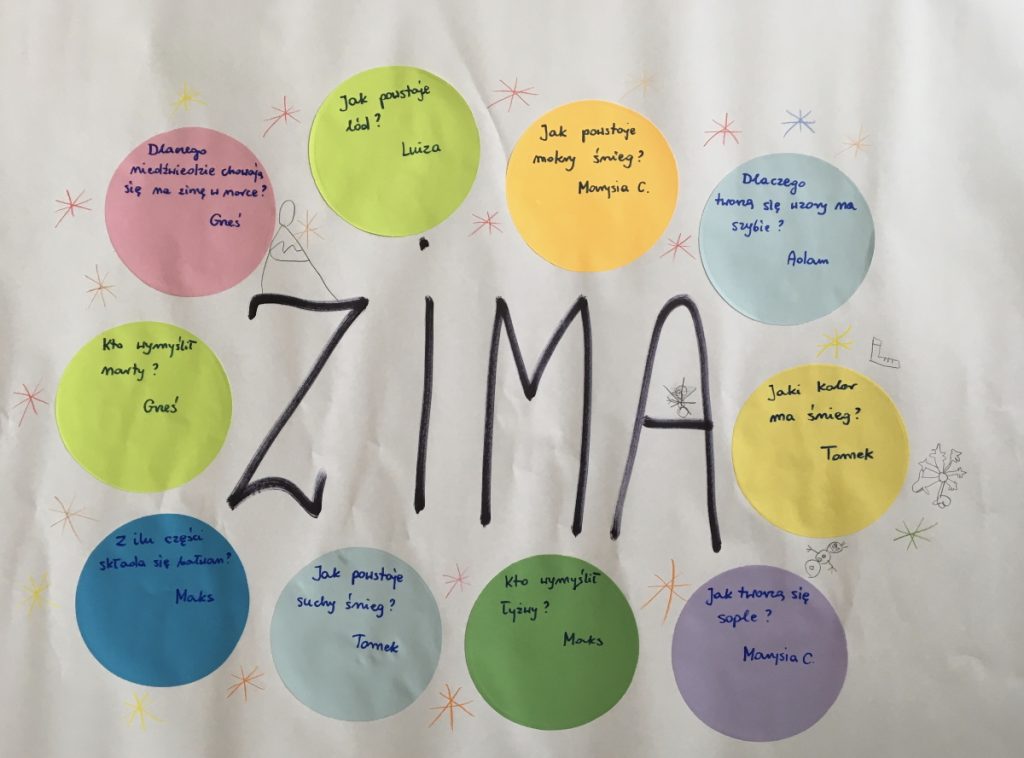 Jak powstaje
lód?
Luiza
Jak powstaje
mokry śnieg?
Marysia C.
Dlaczego
niedźwiedzie chowają
się na zimę w norce?
Gneś
Dlaczego
tworzą się wzory na
szybie?
Adam
ZIMA
Kto wymyślił
narty?
Gneś
Jaki kolor
ma śnieg?
Tomek
Z ilu części
składa się bałwan?
Maks
Jak powstaje
suchy śnieg?
Tomek
Kto wymyślił
łyżwy?
Maks
Jak tworzą się
sople?
Marysia C.